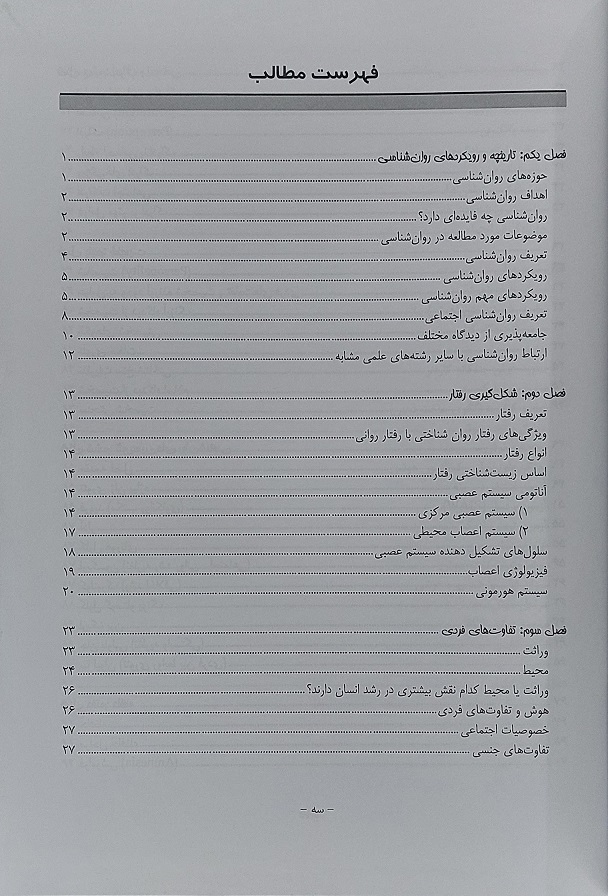 فهرست مطالب
فصل یکم: تاریخچه و رویکردهای روان‌شناسی ... ۱
حوزه‌های روان‌شناسی ... ۱
اهداف روان‌شناسی ... ۲
روان‌شناسی چه فایده‌ای دارد؟ ... ۲
موضوعات مورد مطالعه در روان‌شناسی ... ۲
تعریف روان‌شناسی ... ۴
رویکردهای روان‌شناسی ... ۵
رویکردهای مهم روان‌شناسی ... ۵
تعریف روان‌شناسی اجتماعی ... ۸
جامعه‌پذیری از دیدگاه مختلف ... ۱۰
ارتباط روان‌شناسی با سایر رشته‌های علمی مشابه ... ۱۲
فصل دوم: شکل‌گیری رفتار ... ۱۳
تعریف رفتار ... ۱۳
ویژگی‌های رفتار روان شناختی با رفتار روانی ... ۱۳
انواع رفتار ... ۱۴
اساس زیست‌شناختی رفتار ... ۱۴
آناتومی سیستم عصبی ... ۱۴
۱) سیستم عصبی مرکزی ... ۱۴
۲) سیستم اعصاب محیطی ... ۱۷
سلول‌های تشکیل دهنده سیستم عصبی ... ۱۸
فیزیولوژی اعصاب ... ۱۹
سیستم هورمونی ... ۲۰
فصل سوم: تفاوت‌های فردی ... ۲۳
وراثت ... ۲۳
محیط ... ۲۴
وراثت یا محیط کدام نقش بیشتری در رشد انسان دارند؟ ... ۲۶
هوش و تفاوت‌های فردی ... ۲۶
خصوصیات اجتماعی ... ۲۷
تفاوت‌های جنسی ... ۲۷
– سه –